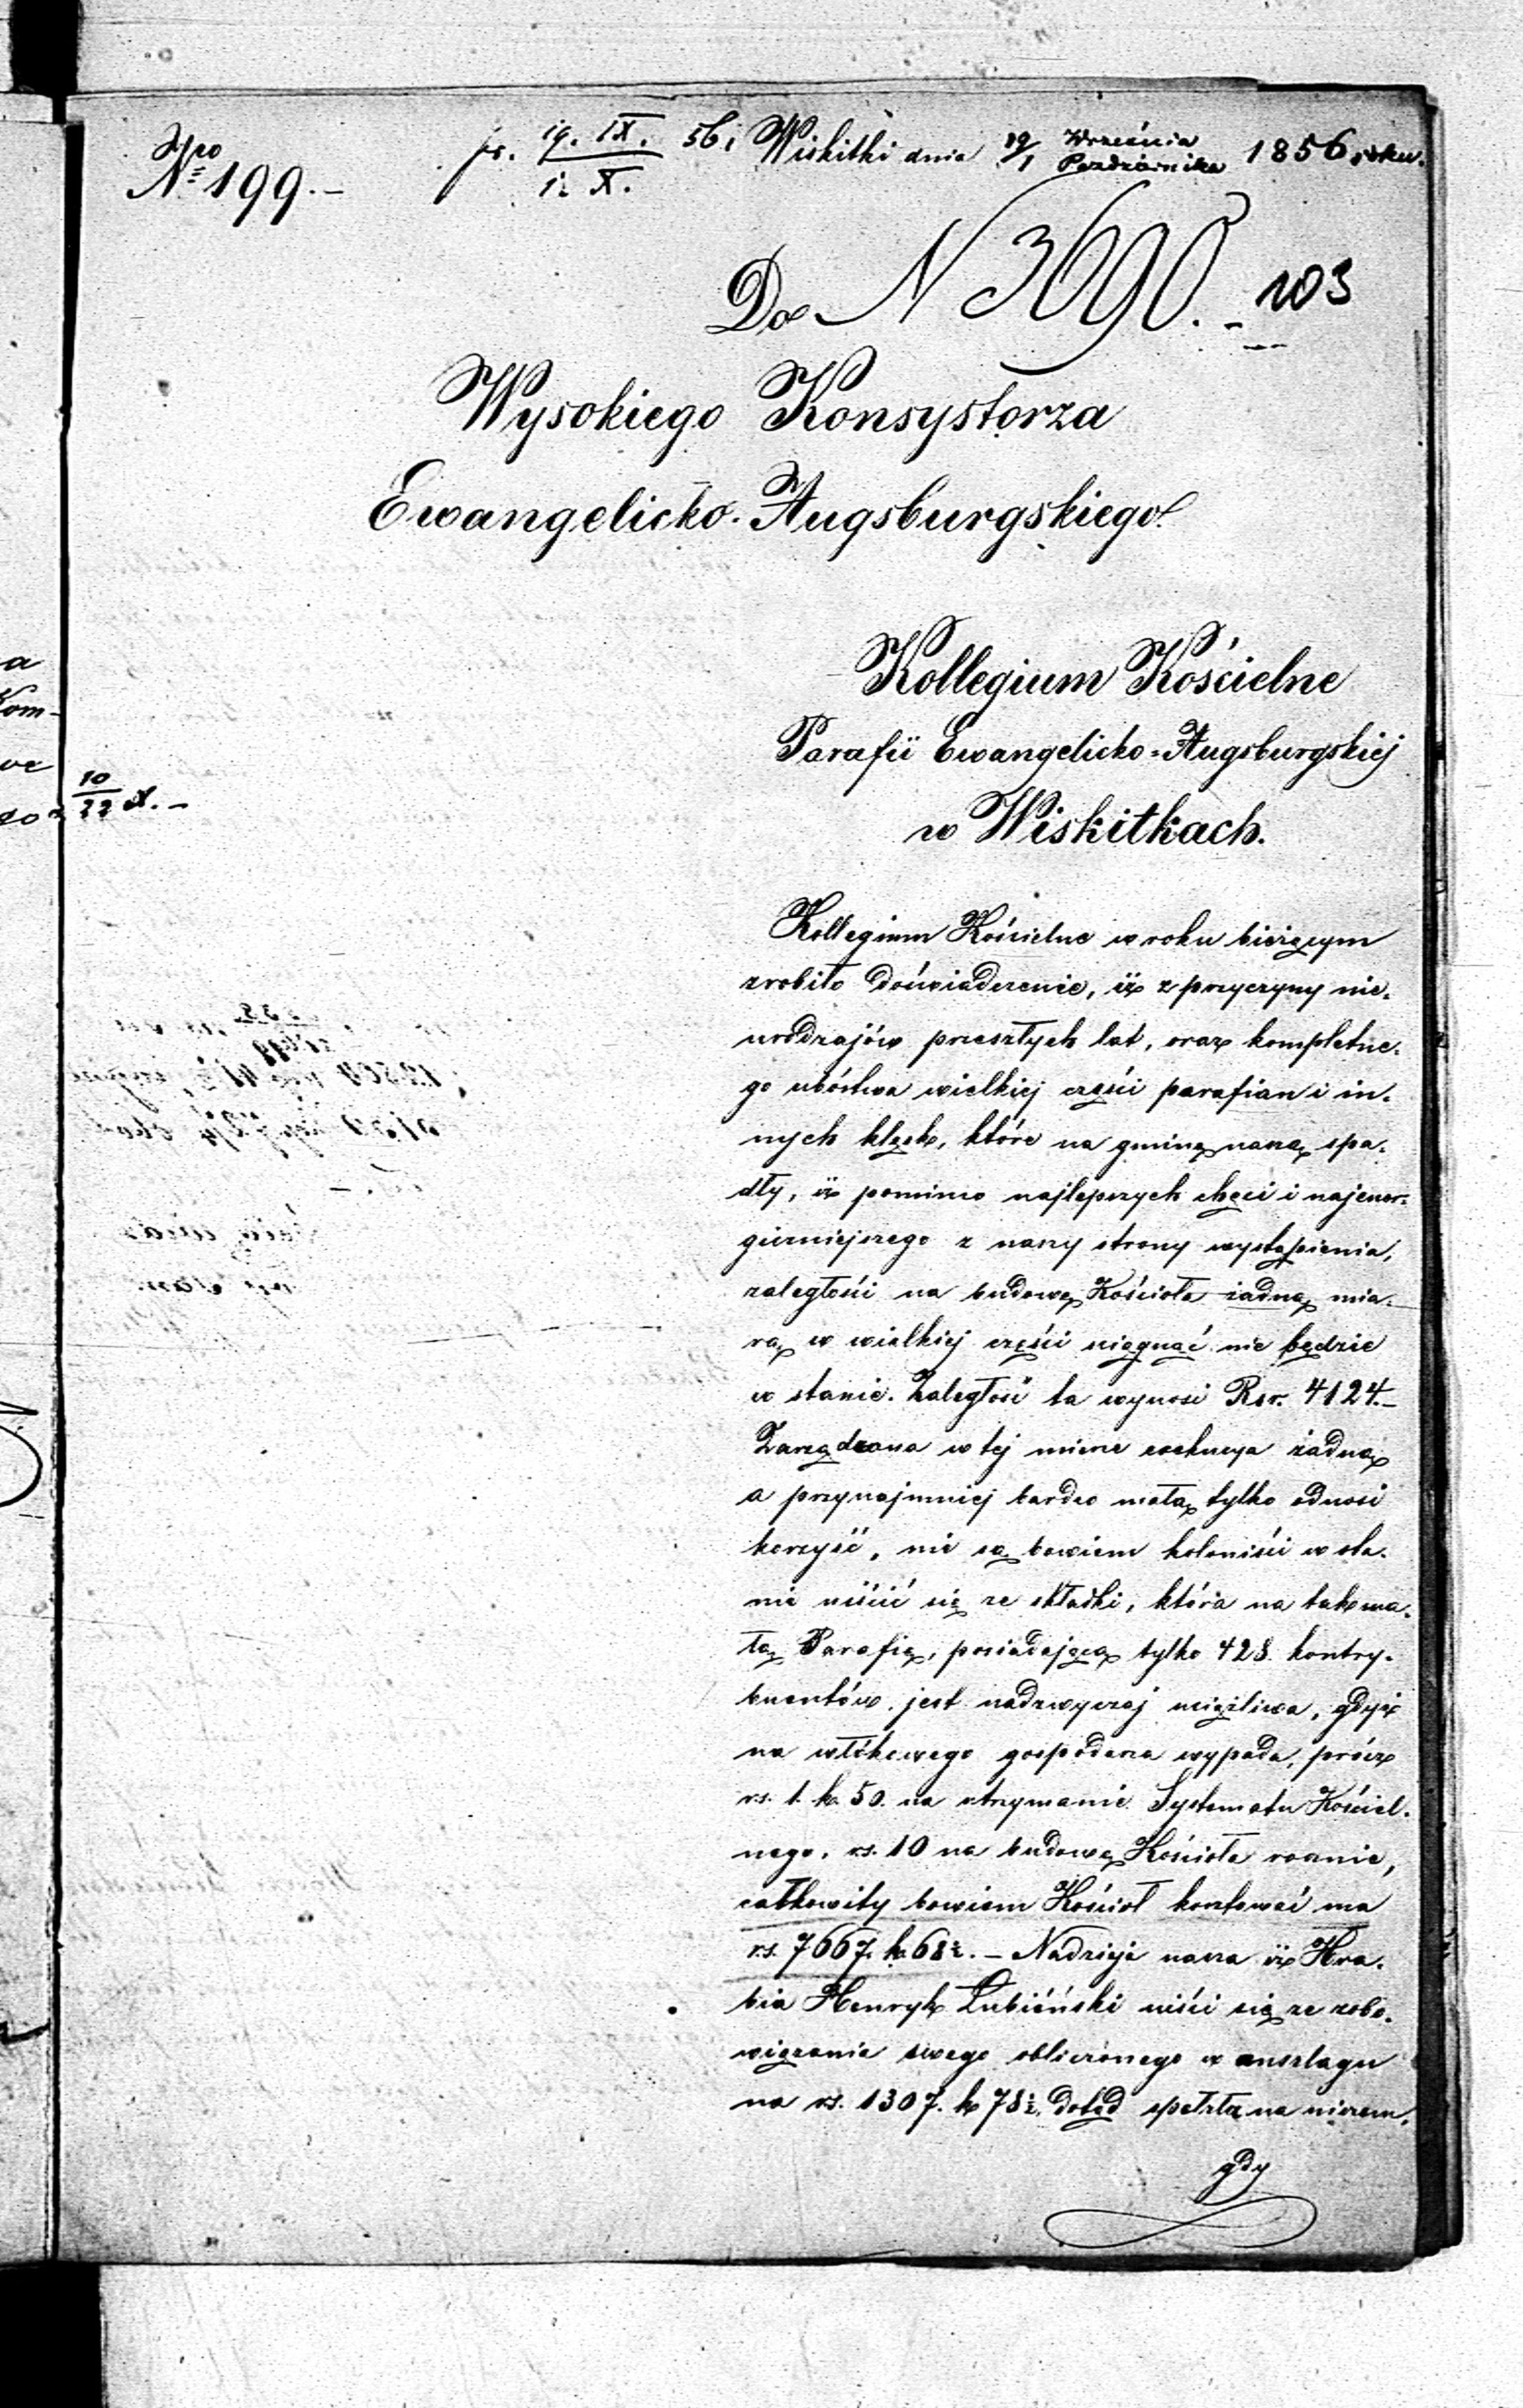 Nro 199.-
pr. 19. IX. 56.
1. X.
Wiskitki dnia 19/1 Września Października 1856 roku.
N 3690. - 103
Do
Wysokiego Konsystorza
Ewangelicko-Augsburgskiego
Kollegium Kościelne
Parafii Ewangelicko-Augsburgskiéj
w Wiskitkach.
10/22 X. -
Kollegium Kościelne w roku bieżącym
zrobiło doświadczenie, iż z przyczyny nie-
urodzajów przeszłych lat, oraz kompletne-
go ubóstwa wielkiej części parafian i in-
nych klęsk, które na gminę naszą spa-
dły, iż pomimo najlepszych chęci i najener-
giczniejszego z naszy strony wystąpienia,
zaległości na budowę Kościoła żadną mia-
rą w wielkiej części ściągnąć nie będzie
w stanie. Zaległość ta wynosi Rsr. 4124.-
Zarządzona w tej mierze exekucya żadną
a przynajmniej bardzo małą tylko odnosi
korzyść, nie są bowiem koloniści w sta-
nie uiścić się ze składki, która na tak ma-
łą Parafię, posiadającą tylko 428 kontry-
buentów jest nadzwyczaj uciążliwa, gdyż
na włókowego gospodarza wypada, prócz
rs. 1. k. 50. na utrzymanie Systematu Kościel-
nego, rs. 10 na budowę Kościoła rocznie,
całkowity bowiem Kościół kosztować ma
rs. 7667. k. 68½. - Nadzieja nasza iż Hra-
bia Henryk Łubieński uiści się ze zobo-
wiązania swego obliczonego w anszlagu
na rs. 1307. k 78½. dotąd spełzła na niczem,
gdy